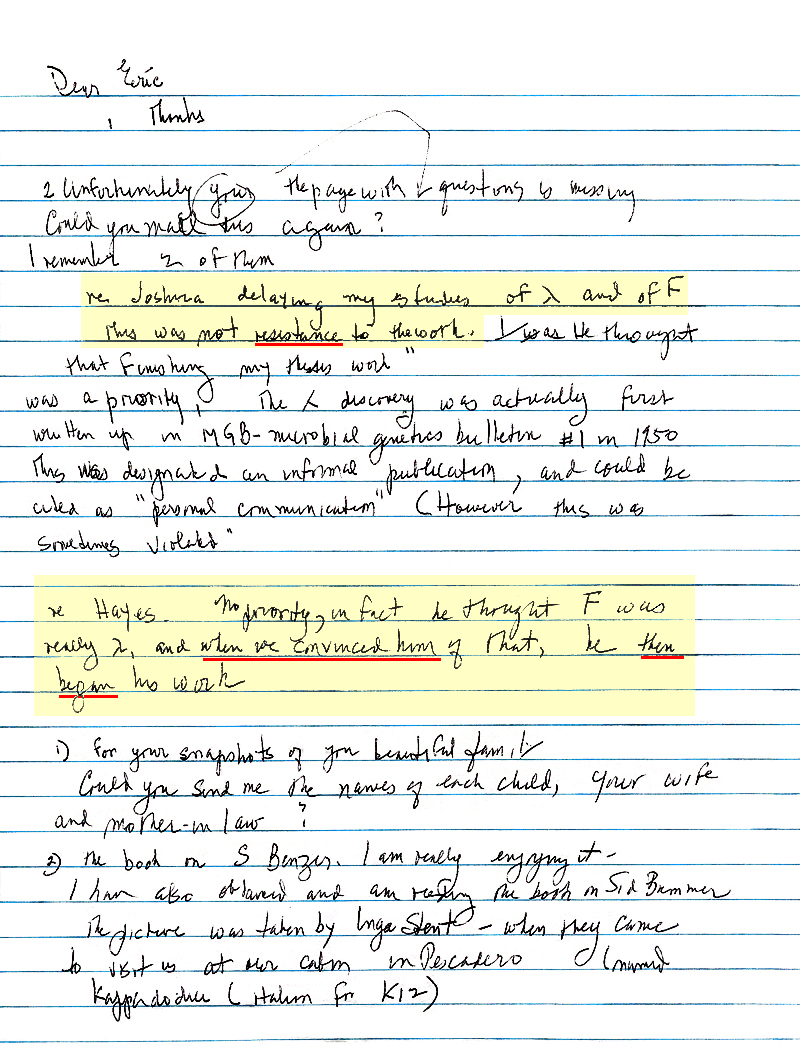 Dear Eric
1 Thanks
2 Unfortunately your the page with questions is missing
Could you mail this again?
I remember 2 of them
re Joshua delaying my studies of λ and of F
This was not resistance to the work. He thought
that finishing my thesis work"
was a priority, The λ discovery was actually first
written up in MGB - microbial genetics bulletin #1 in 1950
This was designated an informal publication, and could be
cited as "personal communication" (However this was
sometimes violated"
re Hayes. No priority, in fact he thought F was
really λ, and when we convinced him of that, he then
began his work
1) for your snapshots of you beautiful family
Could you send me the names of each child, your wife
and mother-in law ?
2) the book on S Benzer. I am really enjoying it -
I have also obtained and am reading the book on Sid Brenner
The picture was taken by Inga Stent - when they came
to visit us at our cabin in Pescadero (named
Kappadodici (Italian for K12)